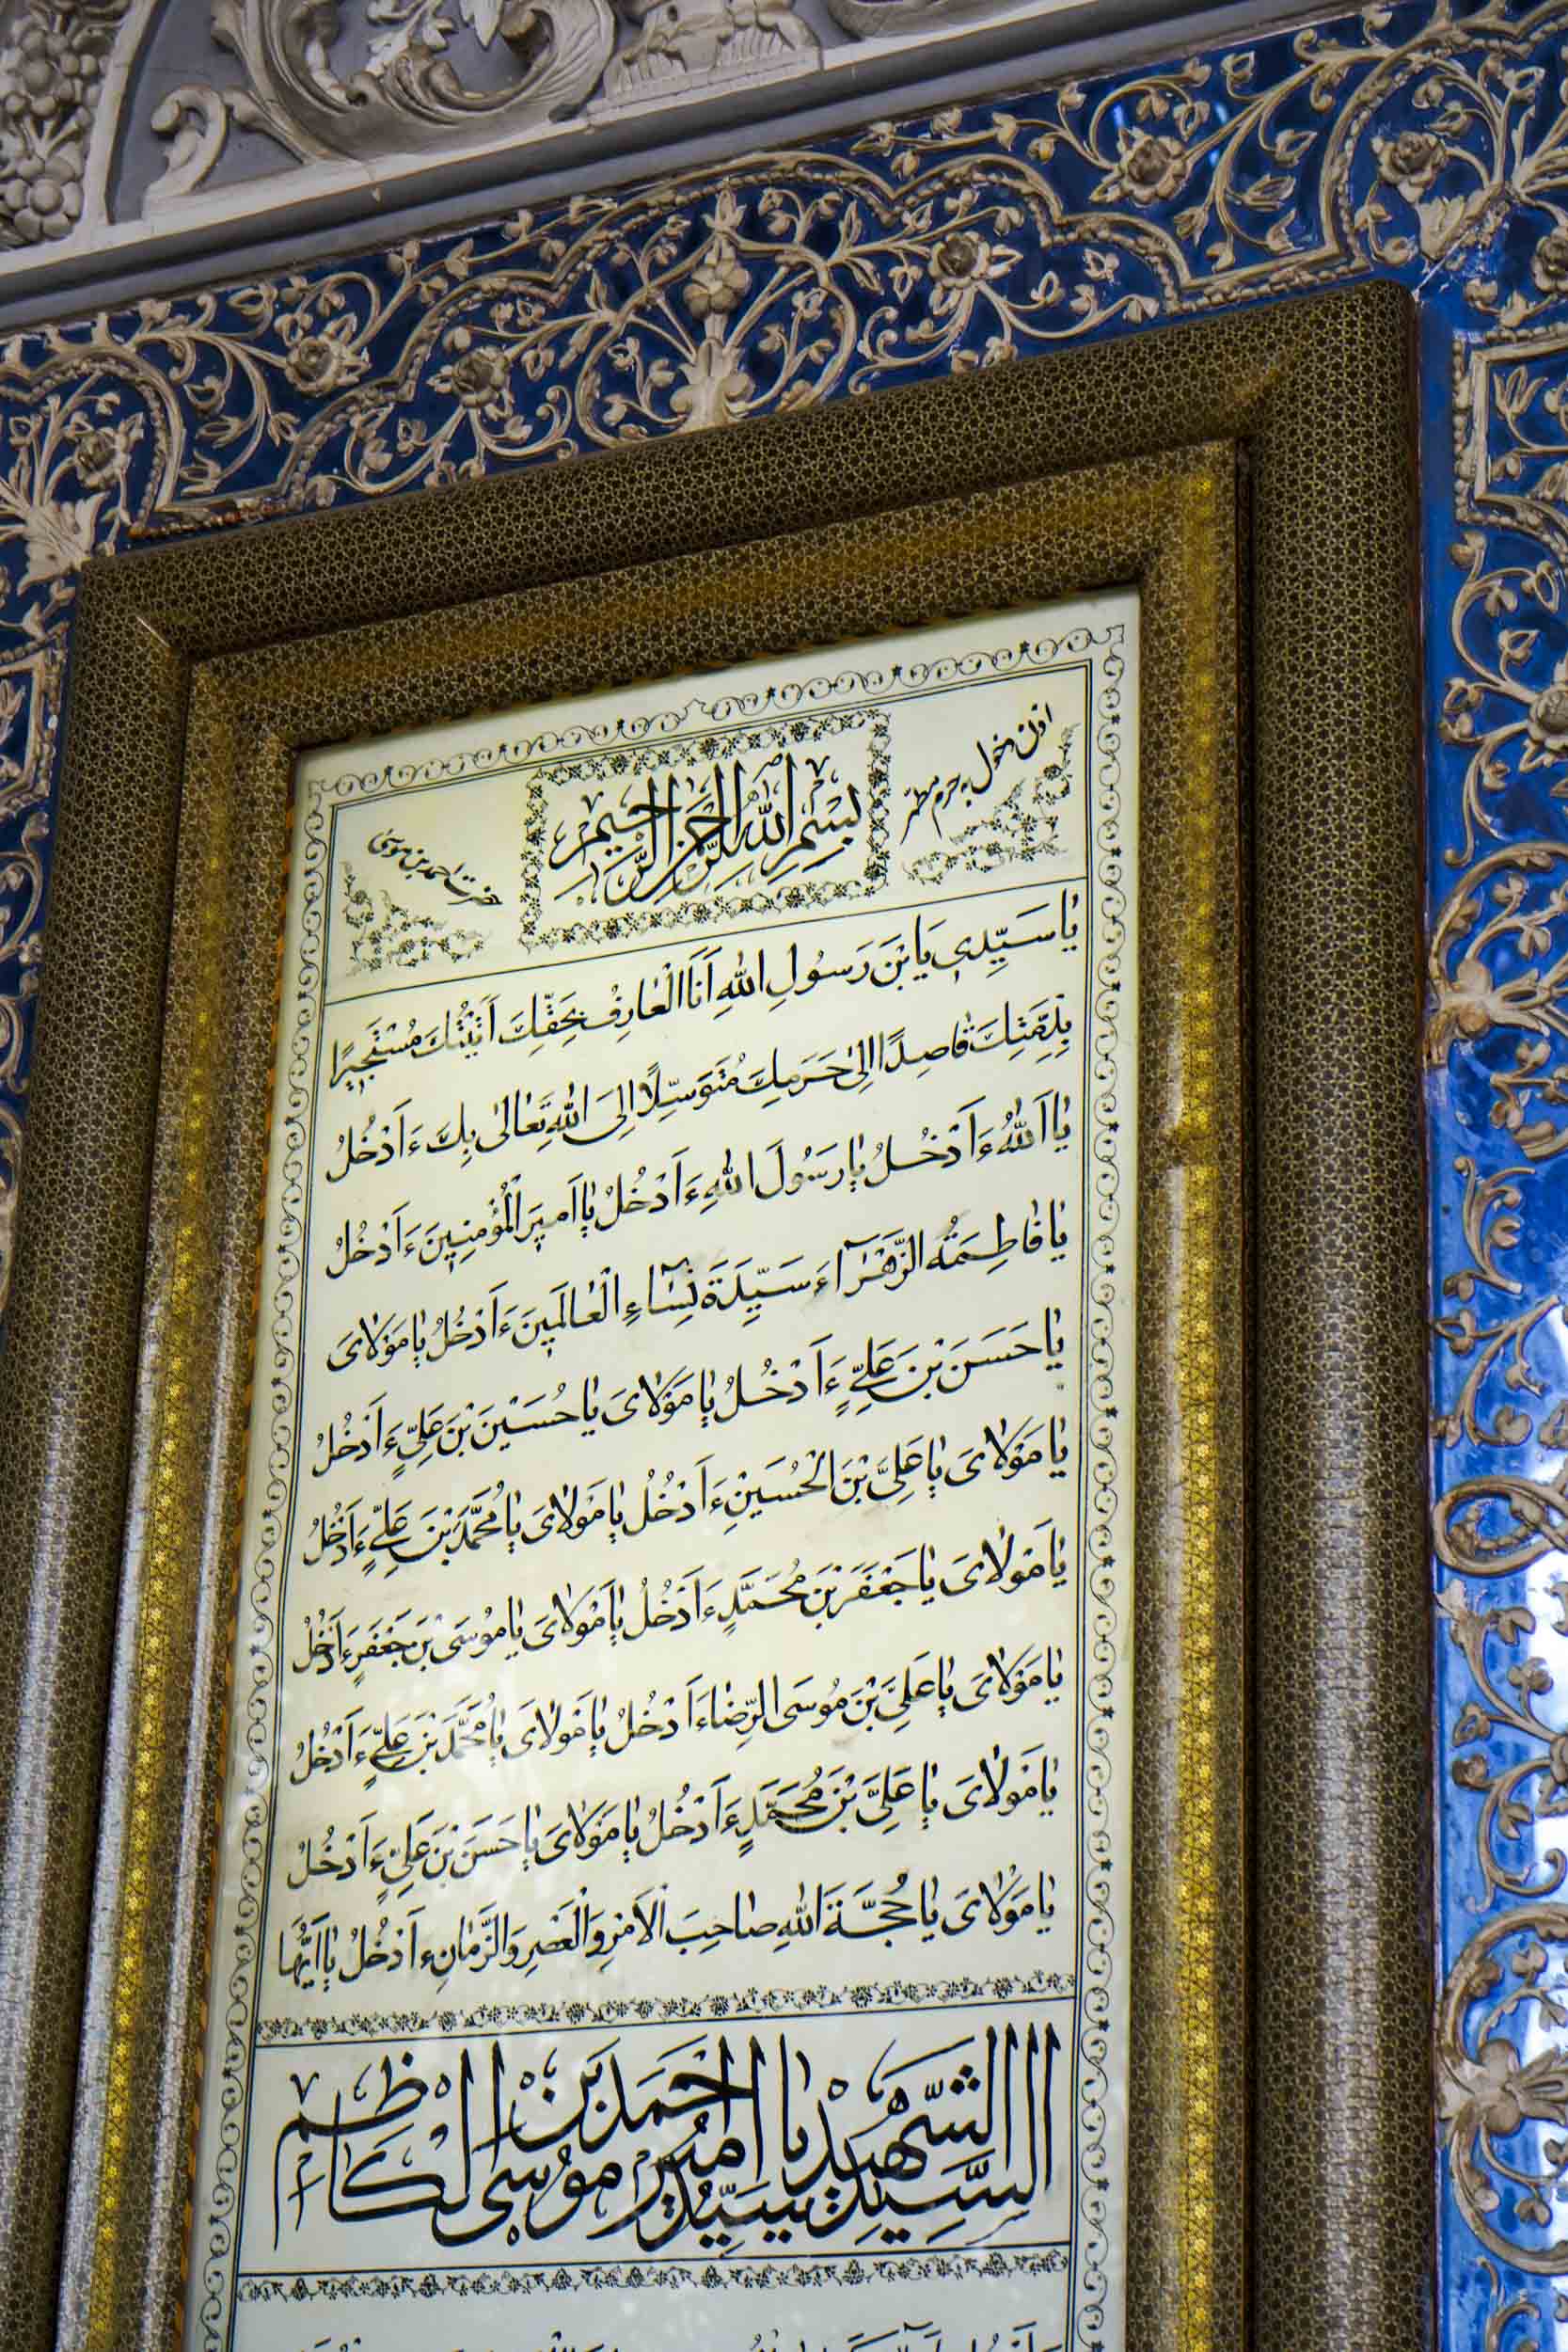 اذن دخول به حرم مطهر
بِسْمِ اللهِ الرَّحْمٰنِ الرَّحِيمِ
حضرت احمد بن موسی
يٰا سَيِّدِي يَابْنَ رَسُولِ اللهِ اَنَا الْعٰارِفُ بِحَقِّكَ اَتَيْتُكَ مُسْتَجِيرًا
بِذِمَّتِكَ قٰاصِدًا اِلىٰ حَرَمِكَ مُتَوَسِّلًا اِلَى اللهِ تَعٰالىٰ بِكَ ءَاَدْخُلُ
يٰا اَللهُ ءَاَدْخُلُ يٰا رَسُولَ اللهِ ءَاَدْخُلُ يٰا اَمِيرَ الْمُؤْمِنِينَ ءَاَدْخُلُ
يٰا فٰاطِمَةُ الزَّهْرٰٓاءَ سَيِّدَةَ نِسٰٓاءِ الْعٰالَمِينَ ءَاَدْخُلُ يٰا مَوْلاٰىَ
يٰا حَسَنَ بْنَ عَلِيٍّ ءَاَدْخُلُ يٰا مَوْلاٰىَ يٰا حُسَيْنَ بْنَ عَلِيٍّ ءَاَدْخُلُ
يٰا مَوْلاٰىَ يٰا عَلِيَّ بْنَ الْحُسَيْنِ ءَاَدْخُلُ يٰا مَوْلاٰىَ يٰا مُحَمَّدَ بْنَ عَلِيٍّ ءَاَدْخُلُ
يٰا مَوْلاٰىَ يٰا جَعْفَرَ بْنَ مُحَمَّدٍ ءَاَدْخُلُ يٰا مَوْلاٰىَ يٰا مُوسَى بْنَ جَعْفَرٍ ءَاَدْخُلُ
يٰا مَوْلاٰىَ يٰا عَلِيَّ بْنَ مُوسَى الرِّضٰا ءَاَدْخُلُ يٰا مَوْلاٰىَ يٰا مُحَمَّدَ بْنَ عَلِيٍّ ءَاَدْخُلُ
يٰا مَوْلاٰىَ يٰا عَلِيَّ بْنَ مُحَمَّدٍ ءَاَدْخُلُ يٰا مَوْلاٰىَ يٰا حَسَنَ بْنَ عَلِيٍّ ءَاَدْخُلُ
يٰا مَوْلاٰىَ يٰا حُجَّةَ اللهِ صٰاحِبَ الْاَمْرِ وَالْعَصْرِ وَالزَّمٰانِ ءَاَدْخُلُ يٰا اَيُّهَا
السَّيِّدُ الشَّهِيدُ يٰا سَيِّدُ اَمِيرُ اَحْمَدَ بْنَ مُوسَى الْكٰاظِمِ